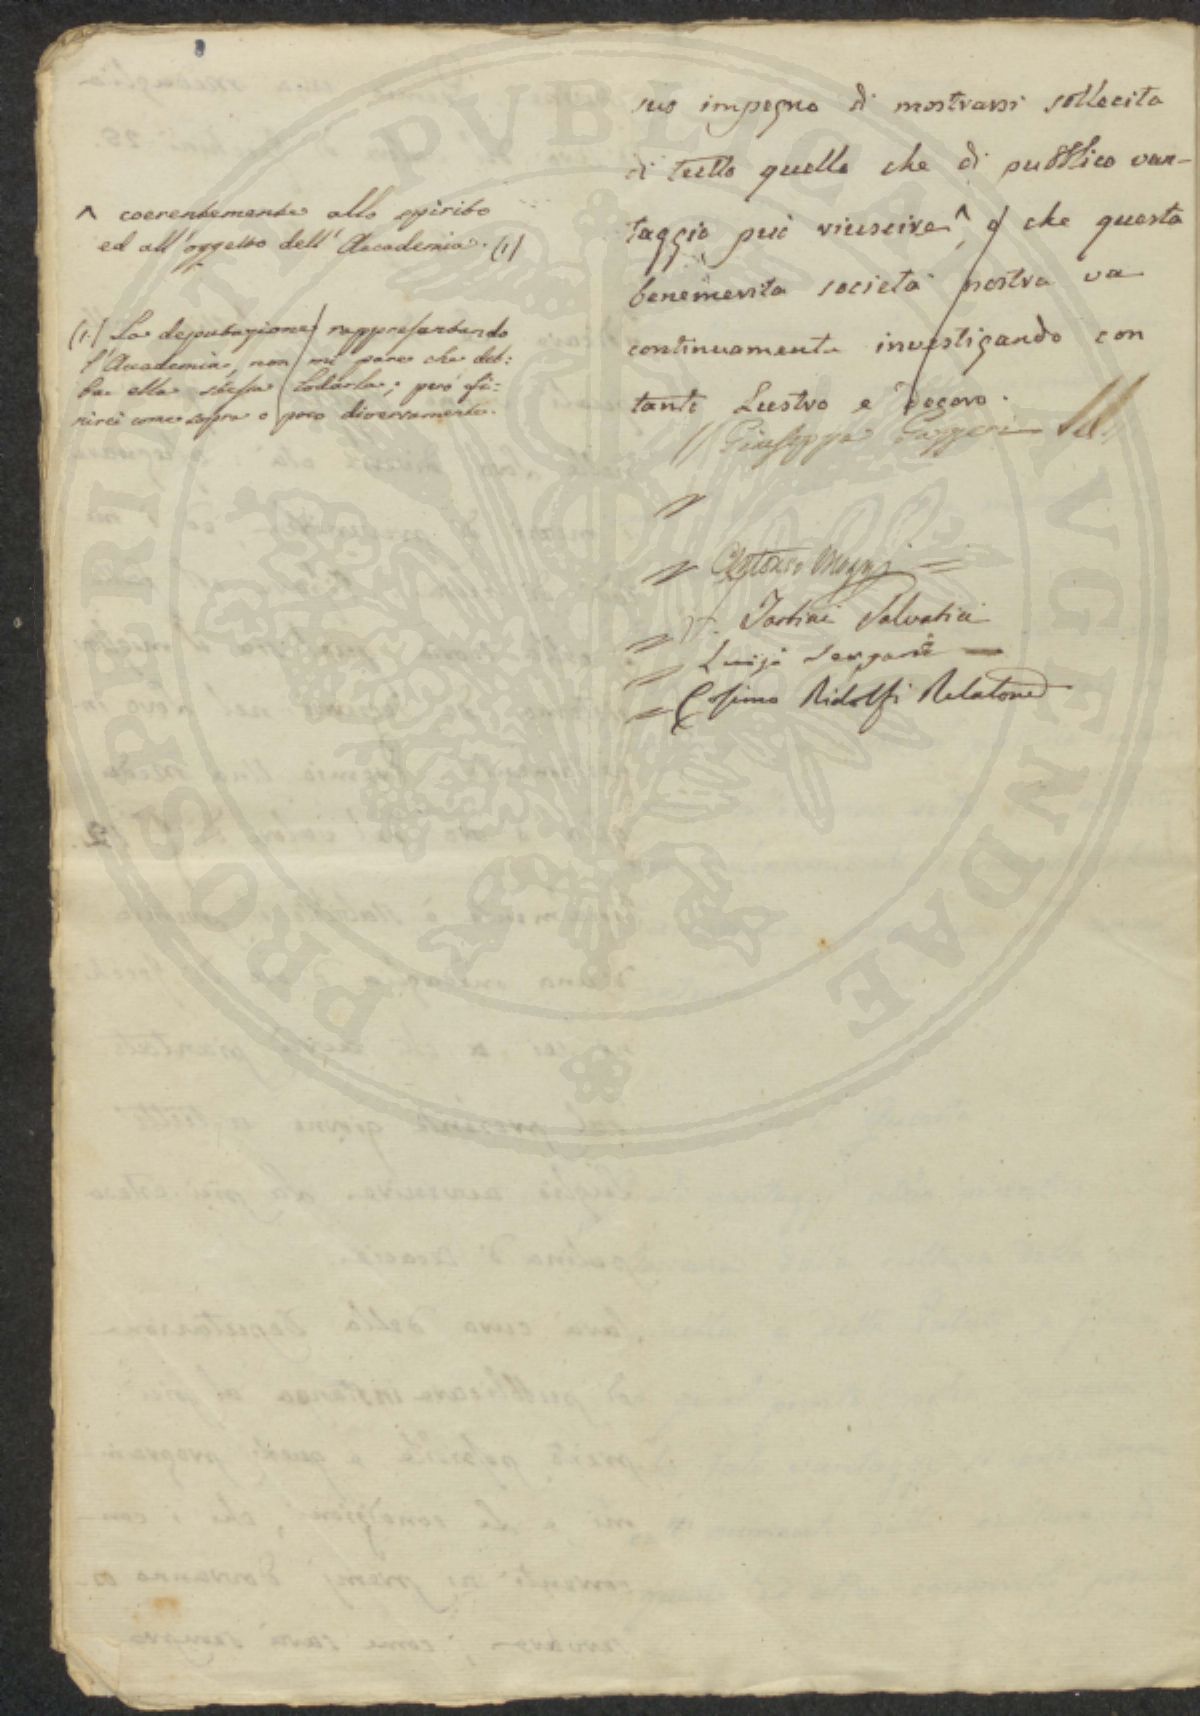 suo impegno di mostrarsi sollecita
di tutto quello che di pubblico van-
taggio può riuscire ^, e che questa
benemerita società nostra va
continuamente investigando con
tanto Lustro e decoro.
^ coerentemente allo spirito
ed all'oggetto dell'Accademia. (1)
(1) La deputazione rappresentando
l'Accademia, non mi pare che deb:
ba ella stessa lodarla; però fi:
nirei come sopra o poco diversamente.
Giuseppe Gazzeri
Antonio
Tartini Salvatici
Luigi
Cosimo Ridolfi Relatore
PROSPERITATI PVBLICAE AVGENDAE